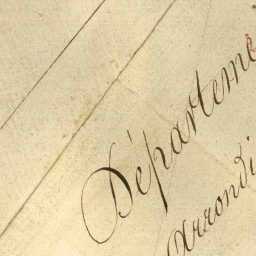 Départeme
Arrondi